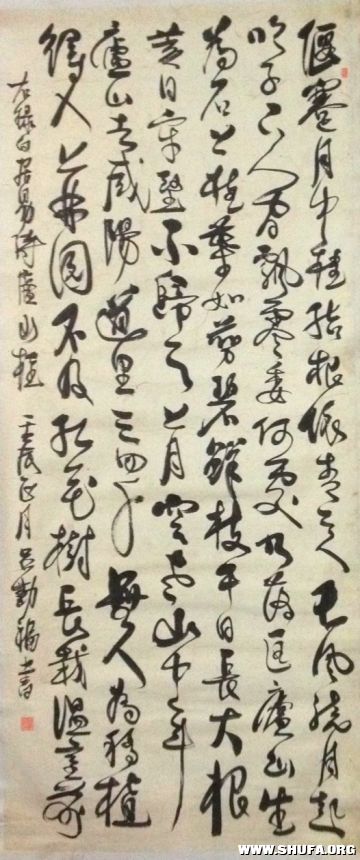 偃蹇月中桂結根依青天天風繞月起
吹子下人間飄零委何處乃落匡廬山生
為石上桂葉如剪碧鮮枝干日長大根
荄日牢堅不歸天上月空老山中年
廬山去咸陽道里三四千無人為移植
得入上林園不及紅花樹長栽溫室前
右錄白居易詩廬山桂 壬戌正月呂書
WWW.SHUFA.ORG